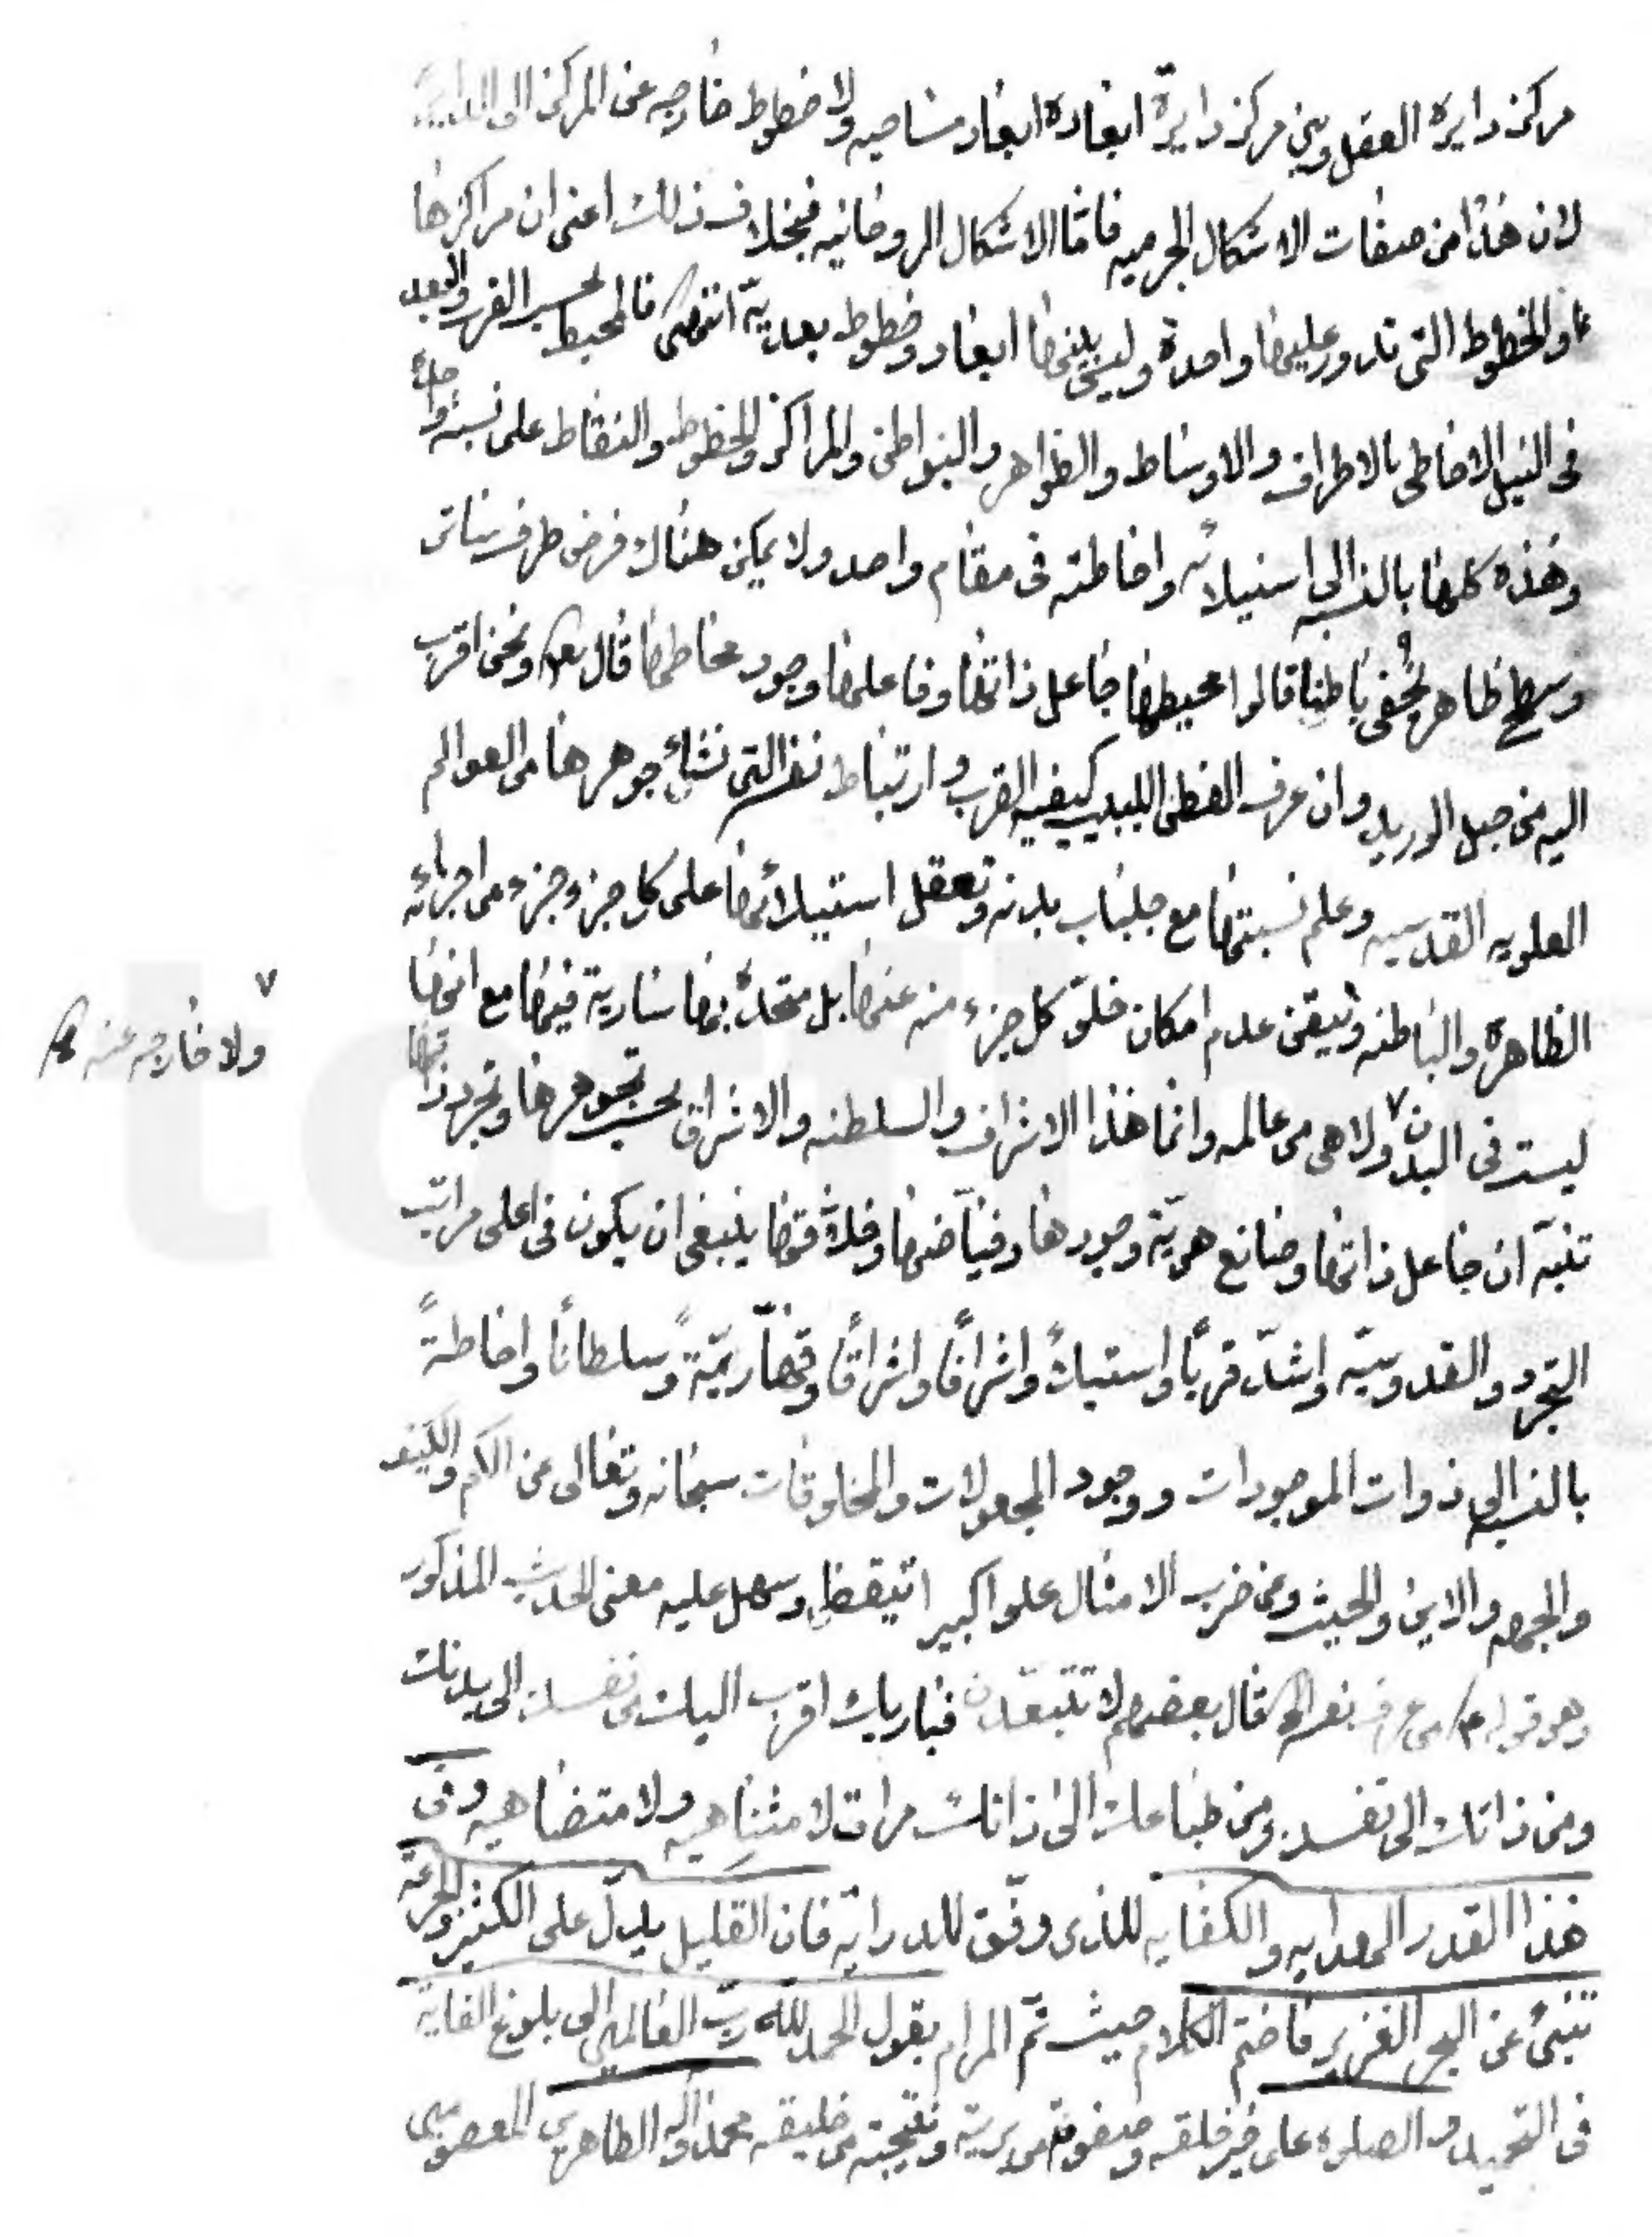 مركز دايرة العقل وبين مركز دايرة ابعاده ابعاد مساحيه ولا خطوط خارجه عن المركز الى الدايرة
لان هذا من صفات الاشكال الجرميه فامّا الاشكال الروحانيه فبخلاف ذلك اعنى ان مراكزها
والخطوط التى تدور عليها واحدة وليس بينها ابعاد وخطوط بعديّة انتهى فالمحيط القرب والبعد
فى النيل الاحاطى بالاطراف والاوساط والظواهر والبواطن والمراكز والخطوط والنقاط على نسبة واحدة
وهذه كلها بالنسبه الى استيلائه واحاطته فى مقام واحد ولا يمكن هناك فرض طرف
وسطح ظاهر يخفى باطنا قالوا محيطها جاعل ذاتها وفاعلها وجود محاطها قال ونحن اقرب
اليه من حبل الوريد وان عرف الفطن اللبيب كيفيه القرب وارتباط نفسه التى نشاء جوهرها من العوالم
العلويه القدسيه وعلم نسبتها مع جلباب بدنه وتعقل استيلائها على كل جزء وجزء من اجزائه
الظاهرة والباطنه وتيقن عدم امكان خلوّ كل جزء منه عنها بل متحدة بها سارية فيها مع انها
ليست فى البدن ولا هى من عالمه وانما هذا الاشراف والسلطنه والاشراق بحسب تجوهرها وتجرد ذاتها
ولا خارجه عنه
تنبّه ان جاعل ذاتها وصانع هويّة وجودها وفيّاضها وخلاقها ينبغى ان يكون فى اعلى مراتب
التجرد والقدوسيّه واشدّ قربًا واستيلاءً واشرافًا واشراقًا وقهّاريّةً وسلطانًا واحاطةً
بالنسبه الى ذوات الموجودات ووجود المجعولات والمخلوقات سبحانه وتعالى عن الكم والكيف
والجهه والاين والحيث وعن ضرب الامثال علوا كبيرا تيقظ وسهل عليه معنى الحديث المذكور
وهو قوله من عرف نفسه قال بعضهم لا تتبعّدن فباريك اقرب اليك من نفسك الى بدنك
ومن ذاتك الى نفسك ومن طباعك الى ذاتك مرات لا متناهيه ولا متضاهيه وفى
هذا القدر الهدايه والكفايه للذى وفّق للدرايه فان القليل يدلّ على الكثير والجرعة
تنبئ عن البحر الغزير فاختم الكلام حيث تمّ المرام بقول الحمد لله ربّ العالمين الى بلوغ الغاية
فى التحميد والصلوة على خير خلقه وصفوته من بريته ونتيجته من خليقه محمد واله الطاهرين المعصومين